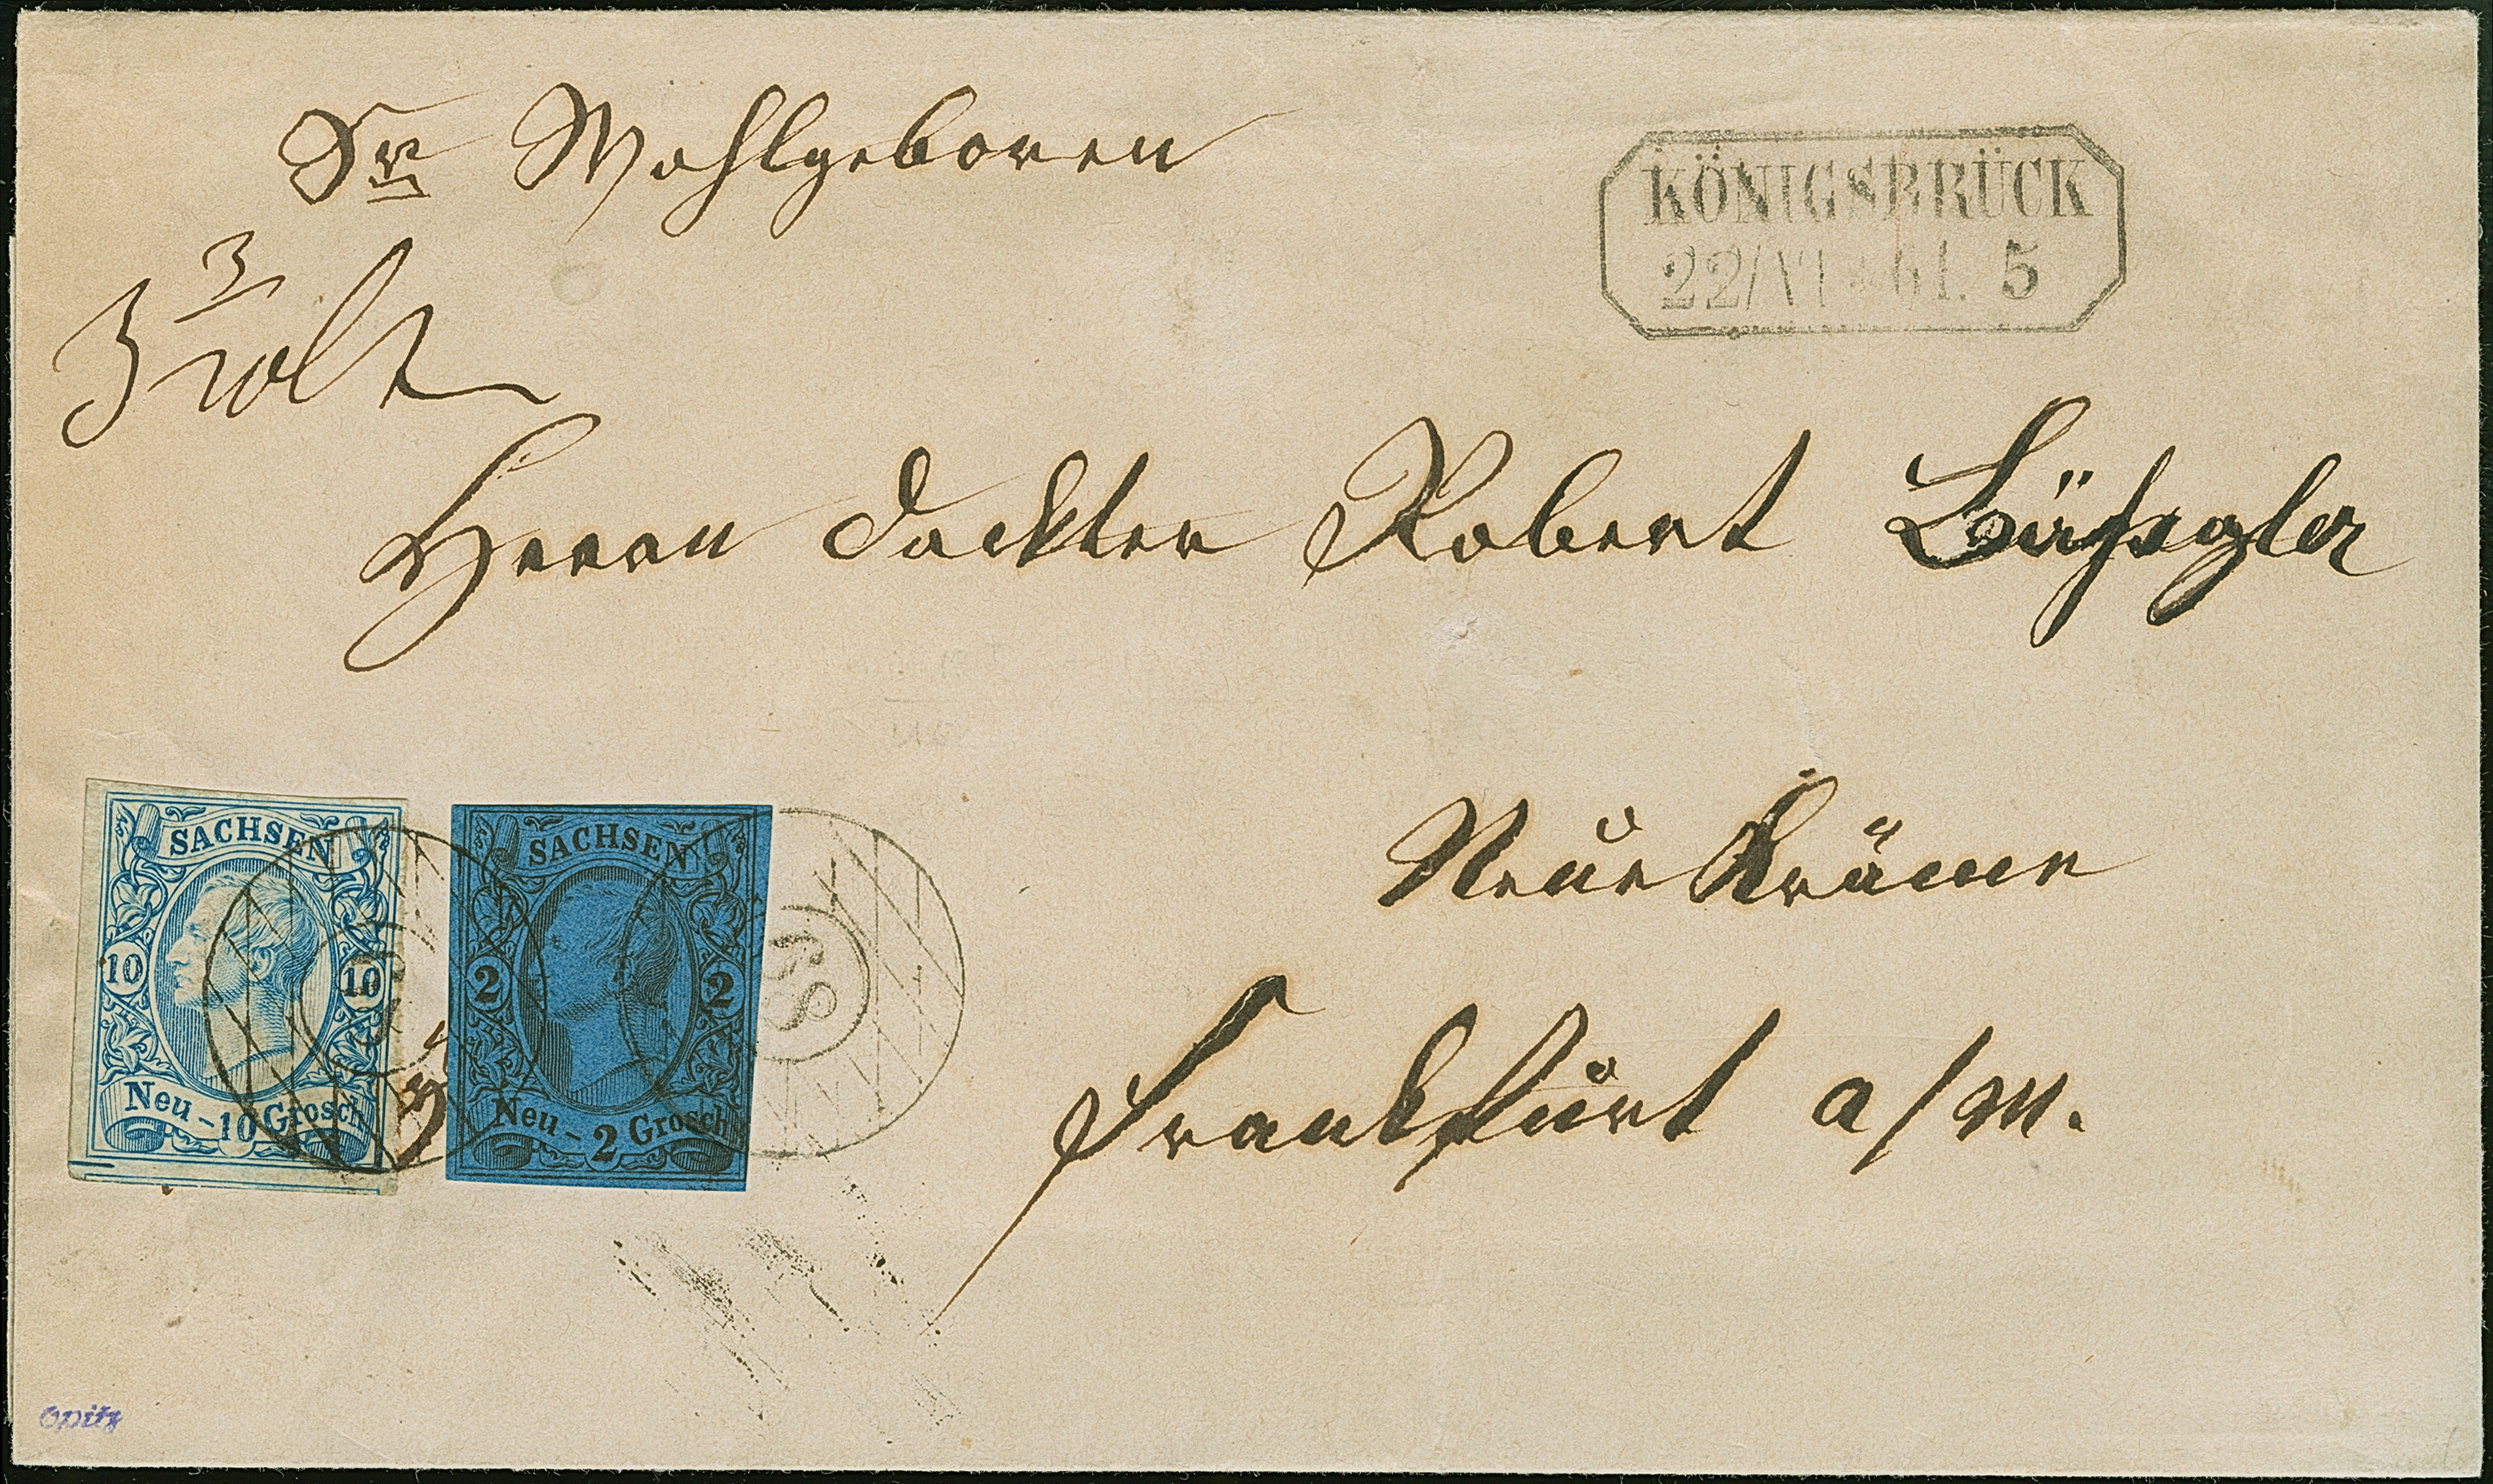 Sr Wohlgeboren
KÖNIGSBRÜCK
22/VI 61. 5
3
Herrn Dockter Robert
Neue Kräme
Frankfurt a/M.
SACHSEN
10 10
Neu-10 Grosch
SACHSEN
2 2
Neu-2 Grosch
Opitz